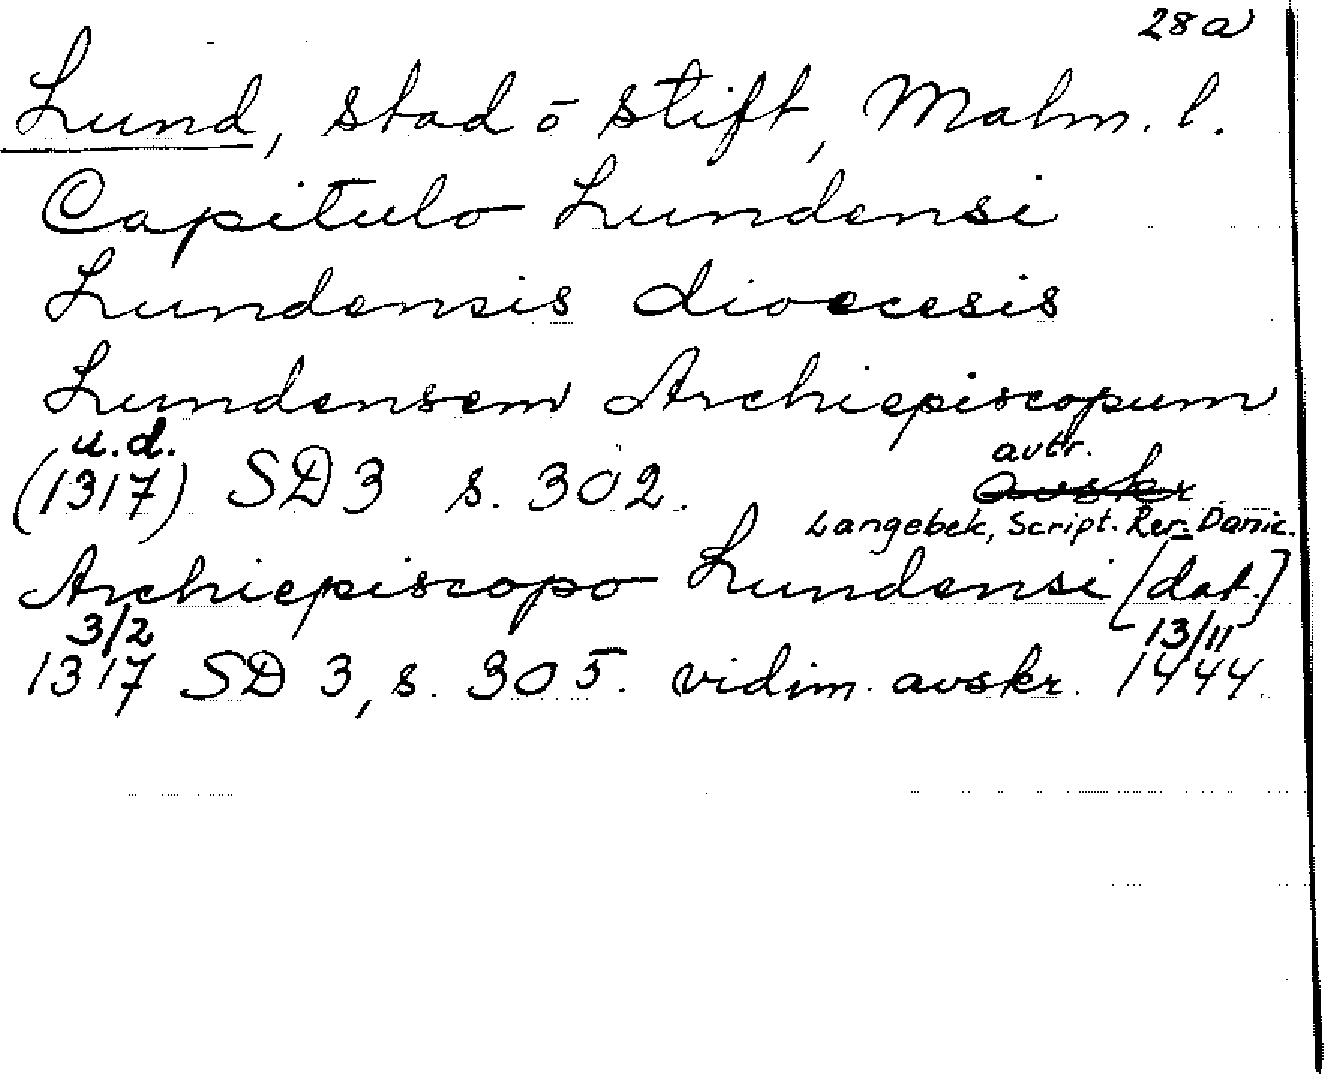 28a
Lund, stad o stift, Malm. l.
Capitulo Lundensi
Lundensis dioecesis
Lundensem Archiepiscopum
u.d.
(1317) SD 3 s. 302. avtr.
avskr
Langebek, Script. Rer. Danic.
Archiepiscopo Lundensi [dat.]
3/2 13/11
1317 SD 3, s. 305. vidim. avskr. 1444.